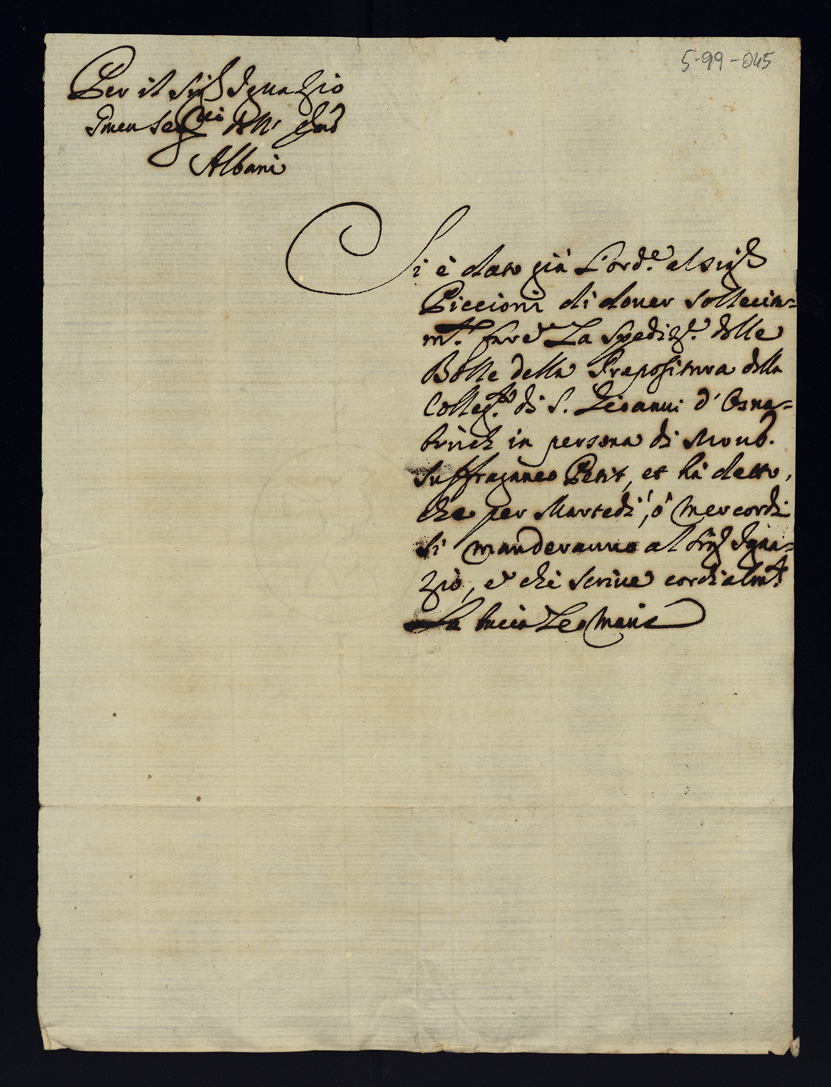 5-99-045
Per il Sig.r Ignazio
dell' Em.o
Albani
Si è dato già l'ord.e al Sig.r
Piccioni di dover sollecita=
m.te fare La Spediz.e delle
Bolle della Prepositura della
Colleg.ta di S. Gioanni d'Osna=
brück in persona di Mons.
Suffraganeo Petit, et hà detto,
che per Martedì, ò Mercordi
si manderanno al Sig.r Igna=
zio, e che scrive cordialm.te